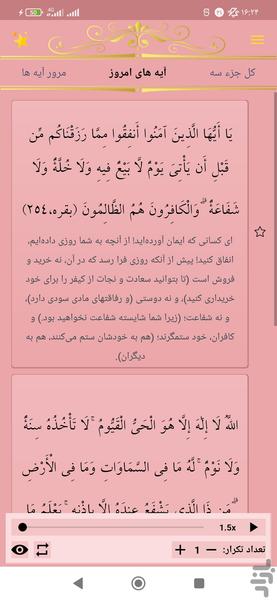 ۱۶:۲۴
4G
کل جزء سه
آیه های امروز
مرور آیه ها
یَا أَیُّهَا الَّذِینَ آمَنُوا أَنفِقُوا مِمَّا رَزَقْنَاکُم مِّن
قَبْلِ أَن یَأْتِیَ یَوْمٌ لَّا بَیْعٌ فِیهِ وَلَا خُلَّةٌ وَلَا
شَفَاعَةٌ ۗ وَالْکَافِرُونَ هُمُ الظَّالِمُونَ (بقره، ۲۵۴)
ای کسانی که ایمان آورده‌اید! از آنچه به شما روزی داده‌ایم،
انفاق کنید! پیش از آنکه روزی فرا رسد که در آن، نه خرید و
فروش است (تا بتوانید سعادت و نجات از کیفر را برای خود
خریداری کنید)، و نه دوستی (و رفاقتهای مادی سودی دارد)،
و نه شفاعت؛ (زیرا شما شایسته شفاعت نخواهید بود.) و
کافران، خود ستمگرند؛ (هم به خودشان ستم می‌کنند، هم به
دیگران).
اللَّهُ لَا إِلَٰهَ إِلَّا هُوَ الْحَیُّ الْقَیُّومُ ۚ لَا تَأْخُذُهُ سِنَةٌ
وَلَا نَوْمٌ ۚ لَّهُ مَا فِی السَّمَاوَاتِ وَمَا فِی الْأَرْضِ
ۗ مَن ذَا الَّذِی یَشْفَعُ عِندَهُ إِلَّا بِإِذْنِهِ ۚ یَعْلَمُ مَا
1.5x
تعداد تکرار: 1
بازار